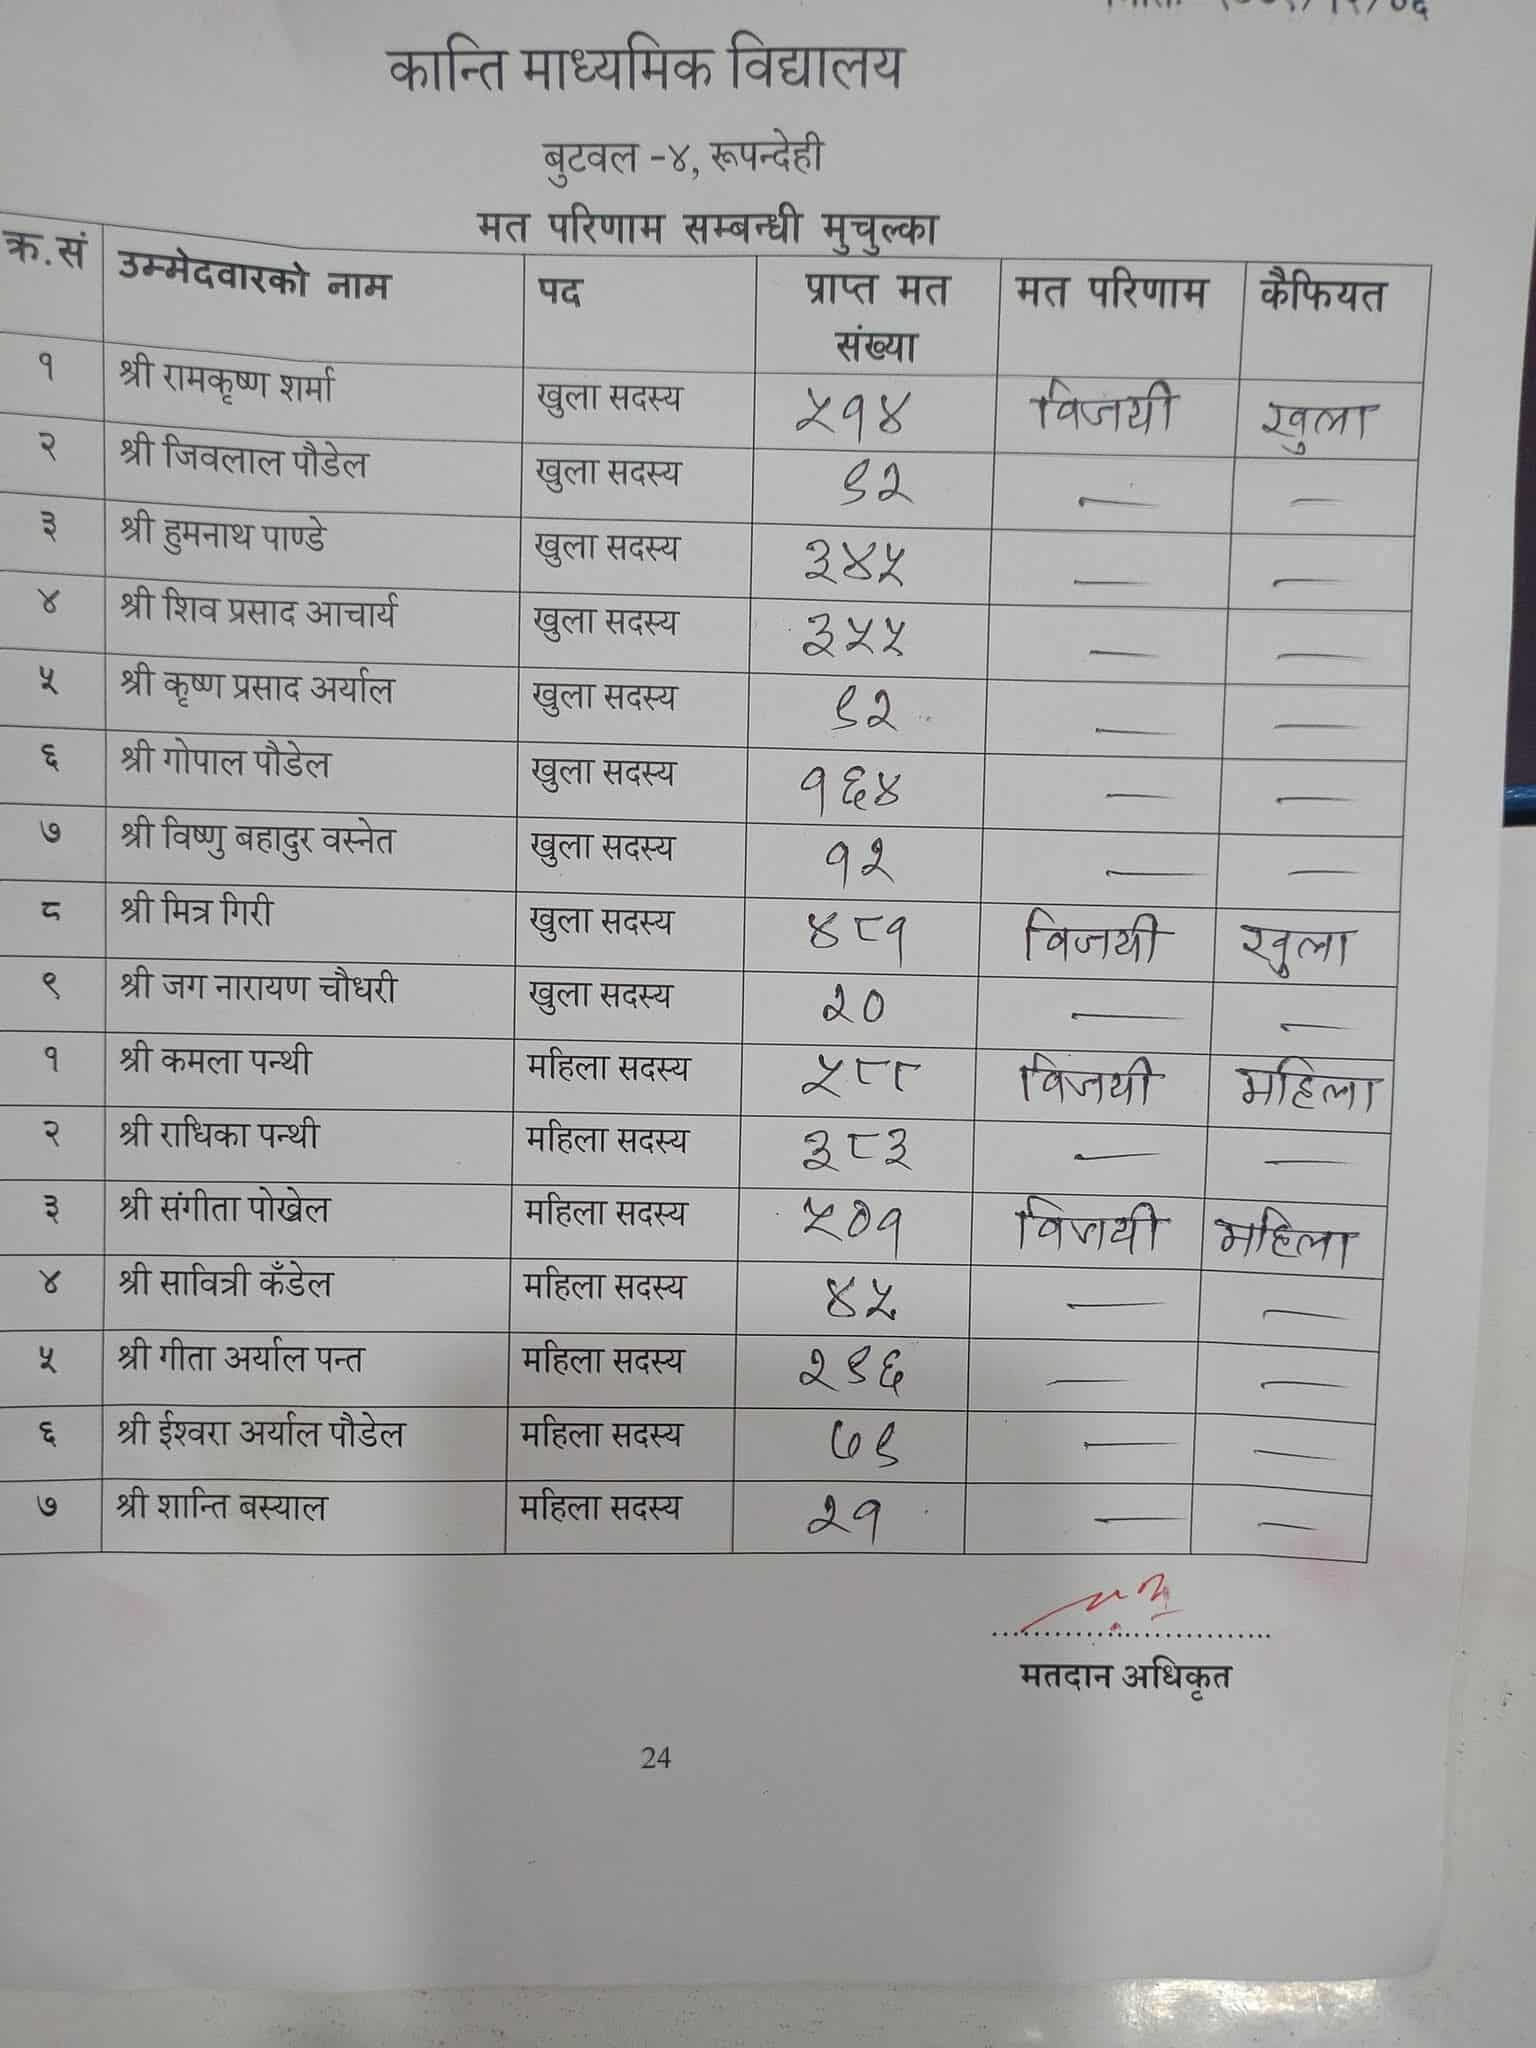 कान्ति माध्यमिक विद्यालय
बुटवल -४, रूपन्देही
मत परिणाम सम्बन्धी मुचुल्का
क्र.सं उम्मेदवारको नाम पद प्राप्त मत संख्या मत परिणाम कैफियत
१ श्री रामकृष्ण शर्मा खुला सदस्य ५१४ विजयी खुला
२ श्री जिवलाल पौडेल खुला सदस्य ९२ — —
३ श्री हुमनाथ पाण्डे खुला सदस्य ३४५ — —
४ श्री शिव प्रसाद आचार्य खुला सदस्य ३५५ — —
५ श्री कृष्ण प्रसाद अर्याल खुला सदस्य ९२ — —
६ श्री गोपाल पौडेल खुला सदस्य १६४ — —
७ श्री विष्णु बहादुर वस्नेत खुला सदस्य १२ — —
८ श्री मित्र गिरी खुला सदस्य ४८१ विजयी खुला
९ श्री जग नारायण चौधरी खुला सदस्य २० — —
१ श्री कमला पन्थी महिला सदस्य ५८८ विजयी महिला
२ श्री राधिका पन्थी महिला सदस्य ३८३ — —
३ श्री संगीता पोखेल महिला सदस्य ५०१ विजयी महिला
४ श्री सावित्री कँडेल महिला सदस्य ४५ — —
५ श्री गीता अर्याल पन्त महिला सदस्य २९६ — —
६ श्री ईश्वरा अर्याल पौडेल महिला सदस्य ७९ — —
७ श्री शान्ति बस्याल महिला सदस्य २१ — —
मतदान अधिकृत
24